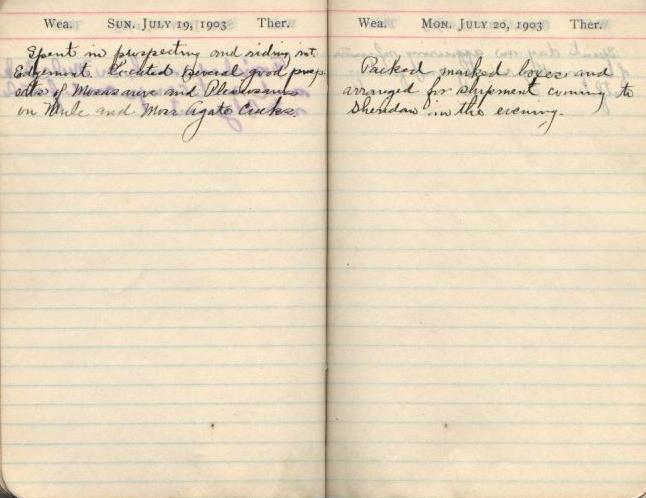 Wea. SUN. JULY 19, 1903 Ther.
Spent in prospecting and riding int
Edgemont Located several good prosp
ects of Mosasaurs and Plesiosaurs
on Mule and Moss Agate Creeks.
Wea. MON. JULY 20, 1903 Ther.
Packed marked boxes and
arranged for shipment coming to
Sheridan in the evening.